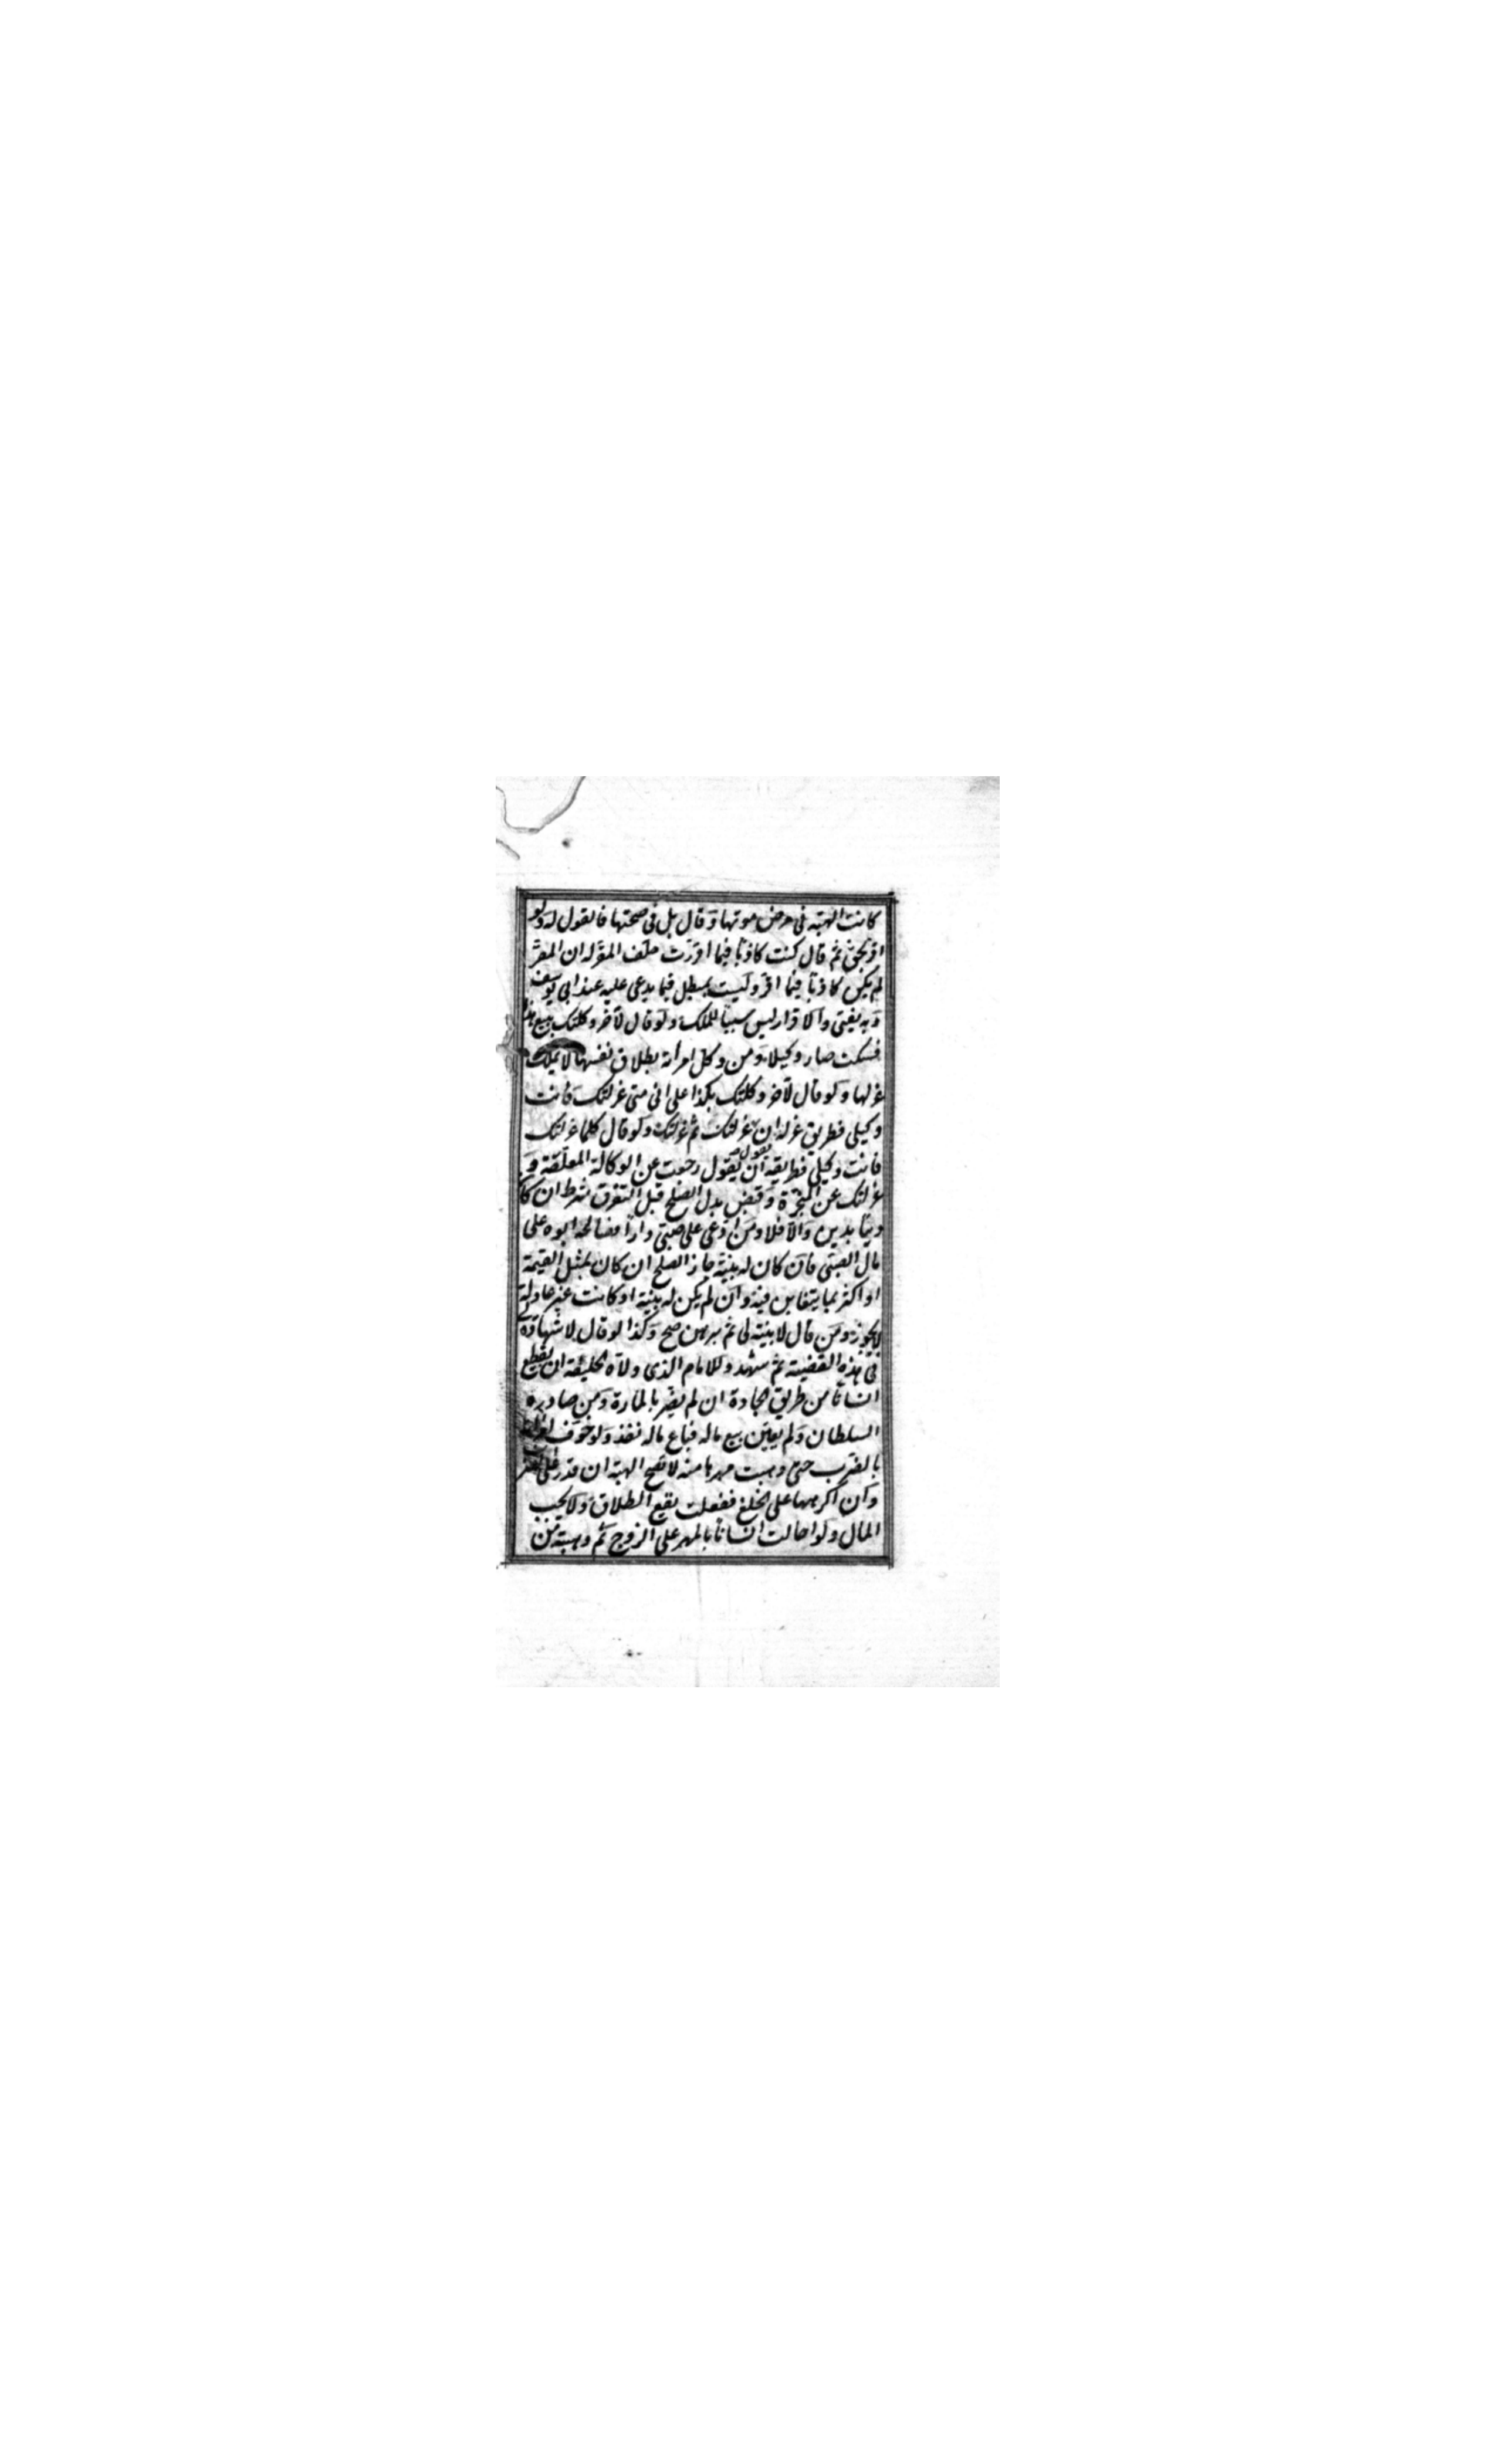 كانت الهبة في مرض موتها وقال بل في صحتها فالقول له ولو
اقر بحق ثم قال كنت كاذباً فيما اقررت حلف المقر له ان المقر
لم يكن كاذباً فيما اقر وليست بمبطل فيما يدعى عليه عند ابي يوسف
وبه يفتى والاقرار ليس سبباً للملك ولو قال لآخر وكلتك ببيع هذا
فسكت صار وكيلا ومن وكل امرأته بطلاق نفسها لا يملك
عزلها ولو قال لآخر وكلتك بكذا على اني متى عزلتك فانت
وكيلي فطريق عزله ان عزلتك ثم عزلتك ولو قال كلما عزلتك
فانت وكيلي فطريقه ان يقول رجعت عن الوكالة المعلقة و
عزلتك عن المنجزة وقبض بدل الصلح قبل التفرق شرط ان كان
ديناً بدين والا فلا ومن ادعى على صبي داراً فصالحه ابوه على
مال الصبي فان كان له بينة جاز الصلح ان كان بمثل القيمة
او اكثر بما يتغابن فيه وان لم يكن له بينة او كانت غير عادلة
لا يجوز ومن قال لا بينة لي ثم برهن صح وكذا لو قال لا شهادة لي
في هذه القضية ثم شهد وللامام الذي ولاه الخليفة ان يقطع
انساناً من طريق الجادة ان لم يضر بالمارة ومن صادره
السلطان ولم يعين بيع ماله فباع ماله نفذ ولو خوف امرأته
بالضرب حتى وهبت مهرها منه لا تصح الهبة ان قدر على الضرب
وان اكرهها على الخلع ففعلت يقع الطلاق ولا يجب
المال ولو احالت انساناً بالمهر على الزوج ثم وهبته من